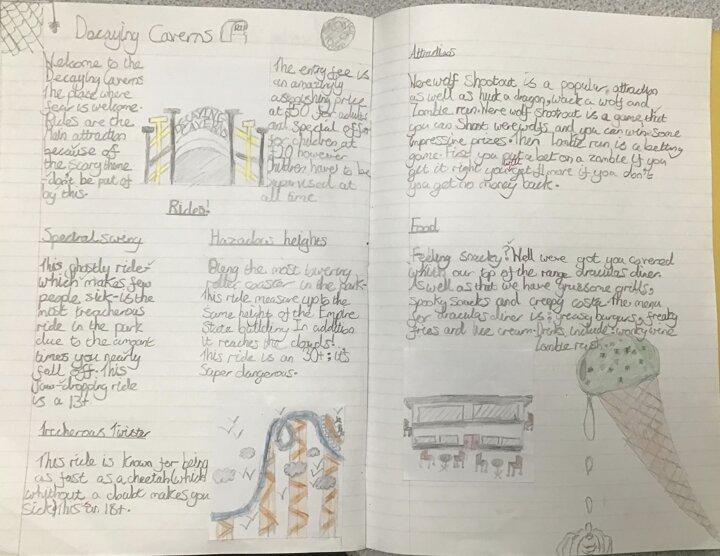 Decaying Caverns
Welcome to the
Decaying Caverns
The place where
fear is welcome.
Rides are the
main attraction
because of
the scary theme
don't be put of
by this.
DECAYING
CAVERNS
The entry fee is
an amazingly
astonishing price
at £50 for adults
and special offer
for children at
£30 however
children have to be
supervised at
all time
Rides!
Spectral swing
This ghostly ride
which makes few
people sick-is the
most treacherous
ride in the park
due to the amount
times you nearly
fall off. This
jaw-dropping ride
is a 13+
Hazadous heighes
Being the most towering
roller coaster in the park.
This ride measure up to the
same height of the Empire
State building In addition
it reaches the clouds!
This ride is an 30+; it's
super dangerous.
Trecherous Twister
This ride is known for being
as fast as a cheetah(which
whythout a doubt makes you
sick)this an 18+.
Attractions
Werewolf Shootout is a popular attraction
as well as hunt a dragon, wack a wolf and
Zombie run. Werewolf shootout is a game that
you can shoot werewolfs and you can win some
impressive prizes. Then Zombie run is a betting
game. First you put a bet on a zombie if you
get it right you will get more if you don's
you get no money back.
Food
Feeling snacky? Well we've got you covered
which our top of the range draculas diner.
As well as that we have gruesome grills,
spooky snacks and creepy costa. The menu
for draculas diner is: greasy burgurs, freaky
fries and Ice cream. Drinks include: wonky wine
Zombie